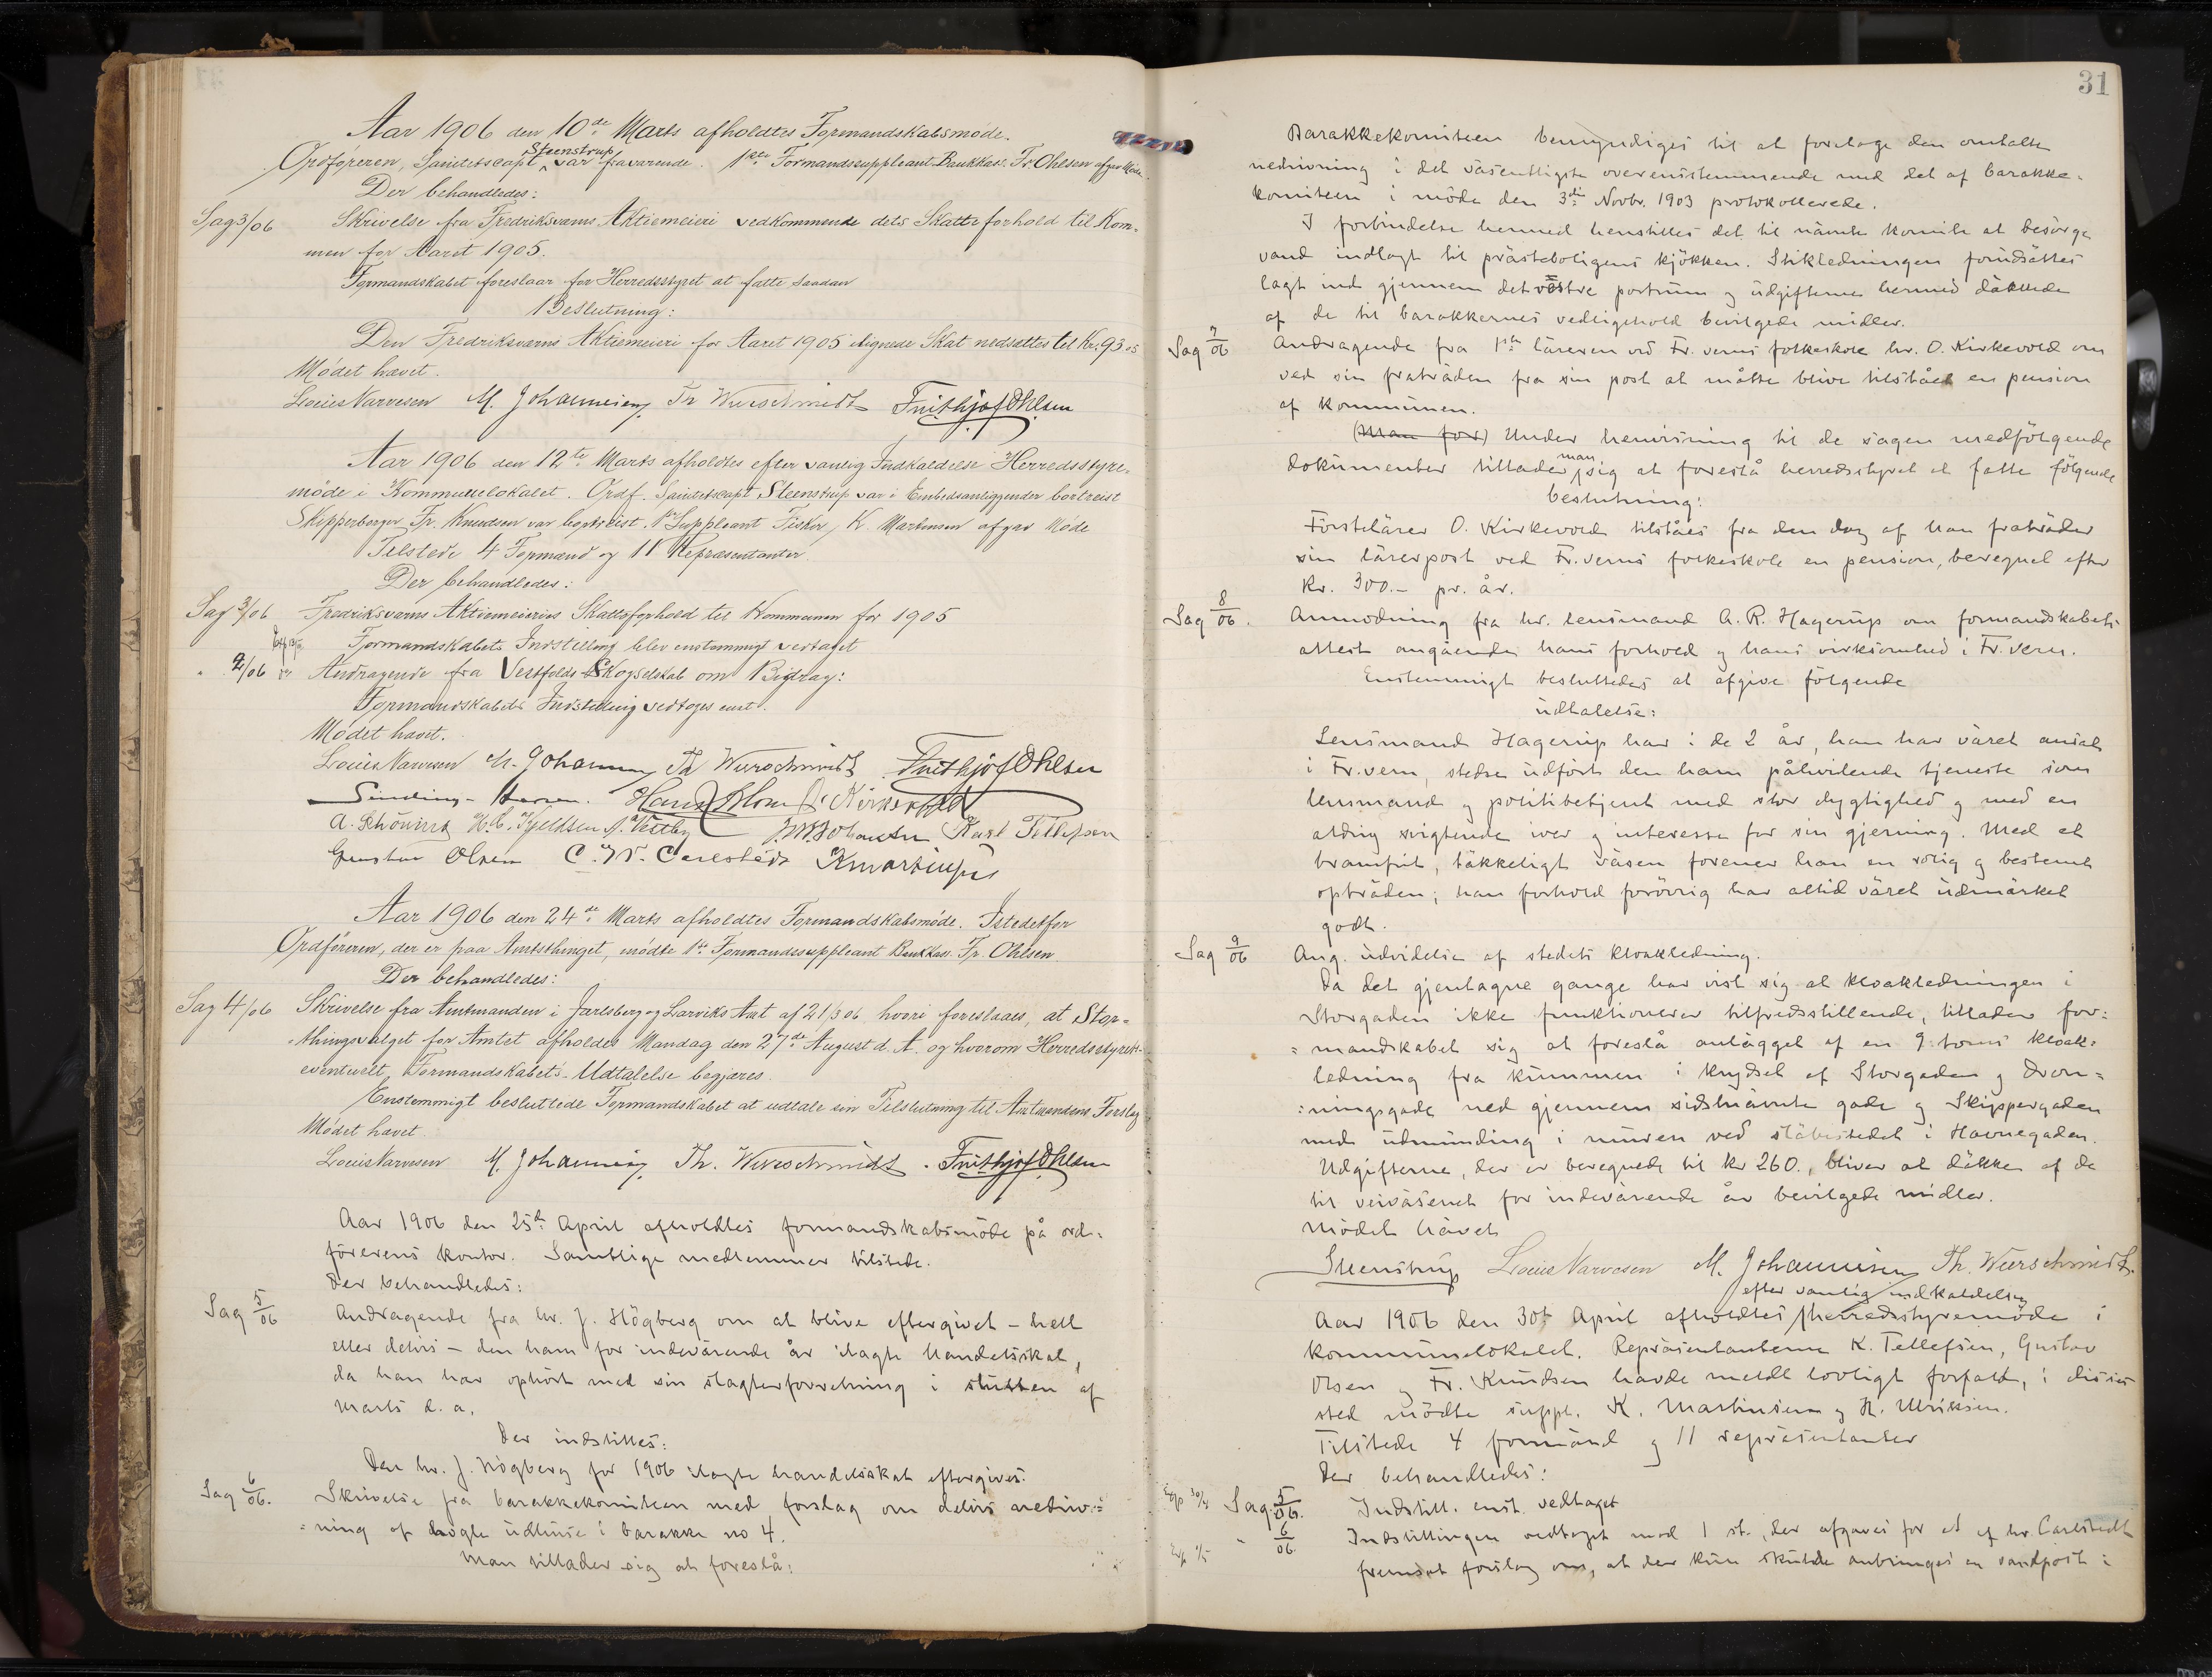 Aar 1906 den 10de Marts afholdtes Formandskabsmøde.
Ordføreren, Sanitetscapt. Steenstrup var fraværende. 1ste Formandssuppleant Bankkas. Fr. Ohlsen afgav Møde.
Der behandledes:
Sag 3/06 Skrivelse fra Fredriksværns Aktiemeieri vedkommende dets Skatteforhold til Kom-
mun for Aaret 1905.
Formandskabet foreslaar for Herredsstyret at fatte saadan
Beslutning:
Den Fredriksværns Aktiemeieri for Aaret 1905 ilignede Skat nedsættes til Kr. 93.05
Mødet hævet.
Louis Narvesen M. Johannesen Th Wurschmidt Frithjof Ohlsen
Aar 1906 den 12te Marts afholdtes efter vanlig Indkaldelse Herredsstyre-
møde i Kommunelokalet. Ordf. Sanitetscapt. Steenstrup var i Embedsanliggender bortreist
Skipperborger Fr. Knudsen var bortreist. 1ste Suppleant Fisker K. Martinsen afgav Møde
Tilstede 4 Formænd og 11 Repræsentanter.
Der behandledes:
Sag 3/06 Fredriksværns Aktiemeieries Skatteforhold til Kommunen for 1905
Formandskabets Indstilling blev enstemmigt vedtaget
" 2/06 Andragende fra Vestfolds Skogselskab om Bidrag:
Formandskabets Indstilling vedtoges enst.
Mødet hævet.
Louis Narvesen M. Johannesen Th Wurschmidt Frithjof Ohlsen
Sinding-Hansen. Hans Blom O. Kirkevold
A. Schöning H. C. Kjeldsen A. Vittby J. M. Johansen Karl Tellefsen
Gustav Olsen C. W. Carlstedt K Martinsen
Aar 1906 den 24de Marts afholdtes Formandskabsmøde. Istedetfor
Ordføreren, der er paa Amtsthinget, mødte 1ste Formandssuppleant Bankkas. Fr. Ohlsen.
Der behandledes:
Sag 4/06 Skrivelse fra Amtmanden i Jarlsberg og Larviks Amt af 21/3 06, hvori foreslaaes, at Stor-
thingsvalget for Amtet afholdes Mandag den 27de August d. A. og hvorom Herredsstyrets
eventuelt, Formandskabets Udtalelse begjæres.
Enstemmigt besluttede Formandskabet at udtale sin Tilslutning til Amtmandens Forslag
Mødet hævet.
Louis Narvesen M. Johannesen Th. Wurschmidt. Frithjof Ohlsen
Aar 1906 den 25de April afholdtes formandskabsmöde på ord-
förerens kontor. Samtlige medlemmer tilstede.
Der behandledes:
Sag 5/06 Andragende fra hr. J. Högberg om at blive eftergivet – helt
eller delvis – den ham for indeværende år ilagte handelsskat,
da han har ophört med sin slagterforretning i slutten af
Marts d. a.
Der indstilles:
Den hr. J. Högberg for 1906 ilagte handelsskat eftergives.
Sag 6/06. Skrivelse fra barakkekomiteen med forslag om delvis nedriv-
=ning af nogle udhuse i barakke no 4.
Man tillader sig at foreslå:
31
Barakkekomiteen bemyndiges til at foretage den omtalte
nedrivning i det väsentligste overensstemmende med det af barakke-
komiteen i möde den 3die Novbr. 1903 protokollerede.
I forbindelse hermed henstilles det til nävnte komite at besörge
vand indlagt til prästeboligens kjökken. Stikledningen forudsättes
lagt ind gjennem det västre portrum og udgifterne hermed däkkede
af de til barakkernes vedligehold bevilgede midler.
Sag 7/06 Andragende fra 1ste läreren ved Fr. verns folkeskole hr. O. Kirkevold om
ved sin fraträden fra sin post at måtte blive tilstået en pension
af kommunen.
(Man for) Under henvisning til de sagen medfölgende
dokumenter tillader man sig at foreslå herredsstyret at fatte fölgende
beslutning:
Förstelärer O. Kirkevold tilståes fra den dag af han fraträder
sin lärerpost ved Fr. verns folkeskole en pension, beregnet efter
Kr. 300.- pr. år.
Sag 8/06. Anmodning fra hr. lensmand A. R. Hagerup om formandskabets
attest angående hans forhold og hans virksomhed i Fr. vern.
Enstemmigt besluttedes at afgive fölgende
udtalelse:
Lensmand Hagerup har i de 2 år, han har väret ansat
i Fr. vern, stedse udfört den ham påhvilende tjeneste som
lensmand og politibetjent med stor dygtighed og med en
aldrig svigtende iver og interesse for sin gjerning. Med et
tramfrit, täkkeligt väsen forener han en rolig og bestemt
opträden; han forhold forövrig har altid väret udmärket
godt.
Sag 9/06 Ang. udvidelse af stedets kloakledning.
Da det gjentagne gange har vist sig at kloakledningen i
Storgaden ikke funktionerer tilfredsstillende, tillader for-
=mandskabet sig at foreslå anlägget af en 9 toms kloak-
ledning fra kummen i krydset af Storgaden og Dron-
=ningsgade ned gjennem sidstnävnte gade og Skippergaden
med udmunding i muren ved släbestedet i Havnegaden.
Udgifterne, der er beregnede til kr 260., bliver at däkke af de
til veiväsenet for indevärende år bevilgede midler.
Mödet hävet
Steenstrup Louis Narvesen M. Johannesen Th. Wurschmidt.
efter vanlig indkaldelse
Aar 1906 den 30te April afholdtes herredsstyremöde i
kommunelokalet. Repräsentanterne K. Tellefsen, Gustav
Olsen og Fr. Knudsen havde meldt lovligt forfald, i disses
sted mödte suppl. K. Martinsen og H. Ulriksen.
Tilstede 4 formänd og 11 repräsentanter
Der behandledes:
Exp 30/4 Sag. 5/06. Indstill. enst. vedtaget
Exp 1/5 " 6/06 Indstillingen vedtaget mod 1 st., der afgaves for et af hr. Carlstedt
fremsat forslag om, at der kun skulde anbringes en vandpost i